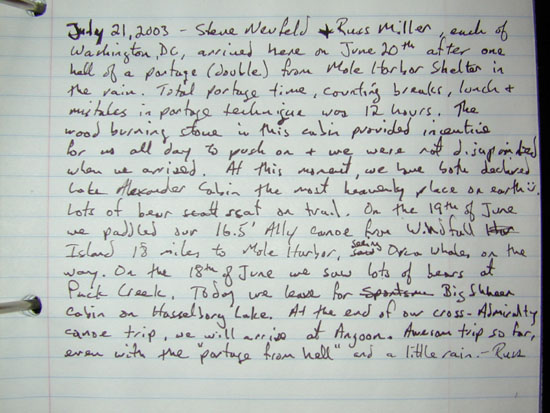 July 21, 2003 - Steve Neufeld + Russ Miller, each of
Washington, DC, arrived here on June 20th after one
hell of a portage (double) from Mole Harbor Shelter in
the rain. Total portage time, counting breaks, lunch +
mistakes in portage technique was 12 hours. The
wood burning stove in this cabin provided incentive
for us all day to push on + we were not disappointed
when we arrived. At this moment, we have both declared
Lake Alexander Cabin the most heavenly place on earth.
Lots of bear scatt scat on trail. On the 19th of June
we paddled our 16.5' Ally canoe from Windfall
Island 18 miles to Mole Harbor, seeing Orca whales on the
way. On the 18th of June we saw lots of bears at
Pack Creek. Today we leave for Sportsmen Big Shaheen
cabin on Hasselborg Lake. At the end of our cross-Admiralty
canoe trip, we will arrive at Angoon. Awesom trip so far,
even with the "portage from hell" and a little rain. - Russ